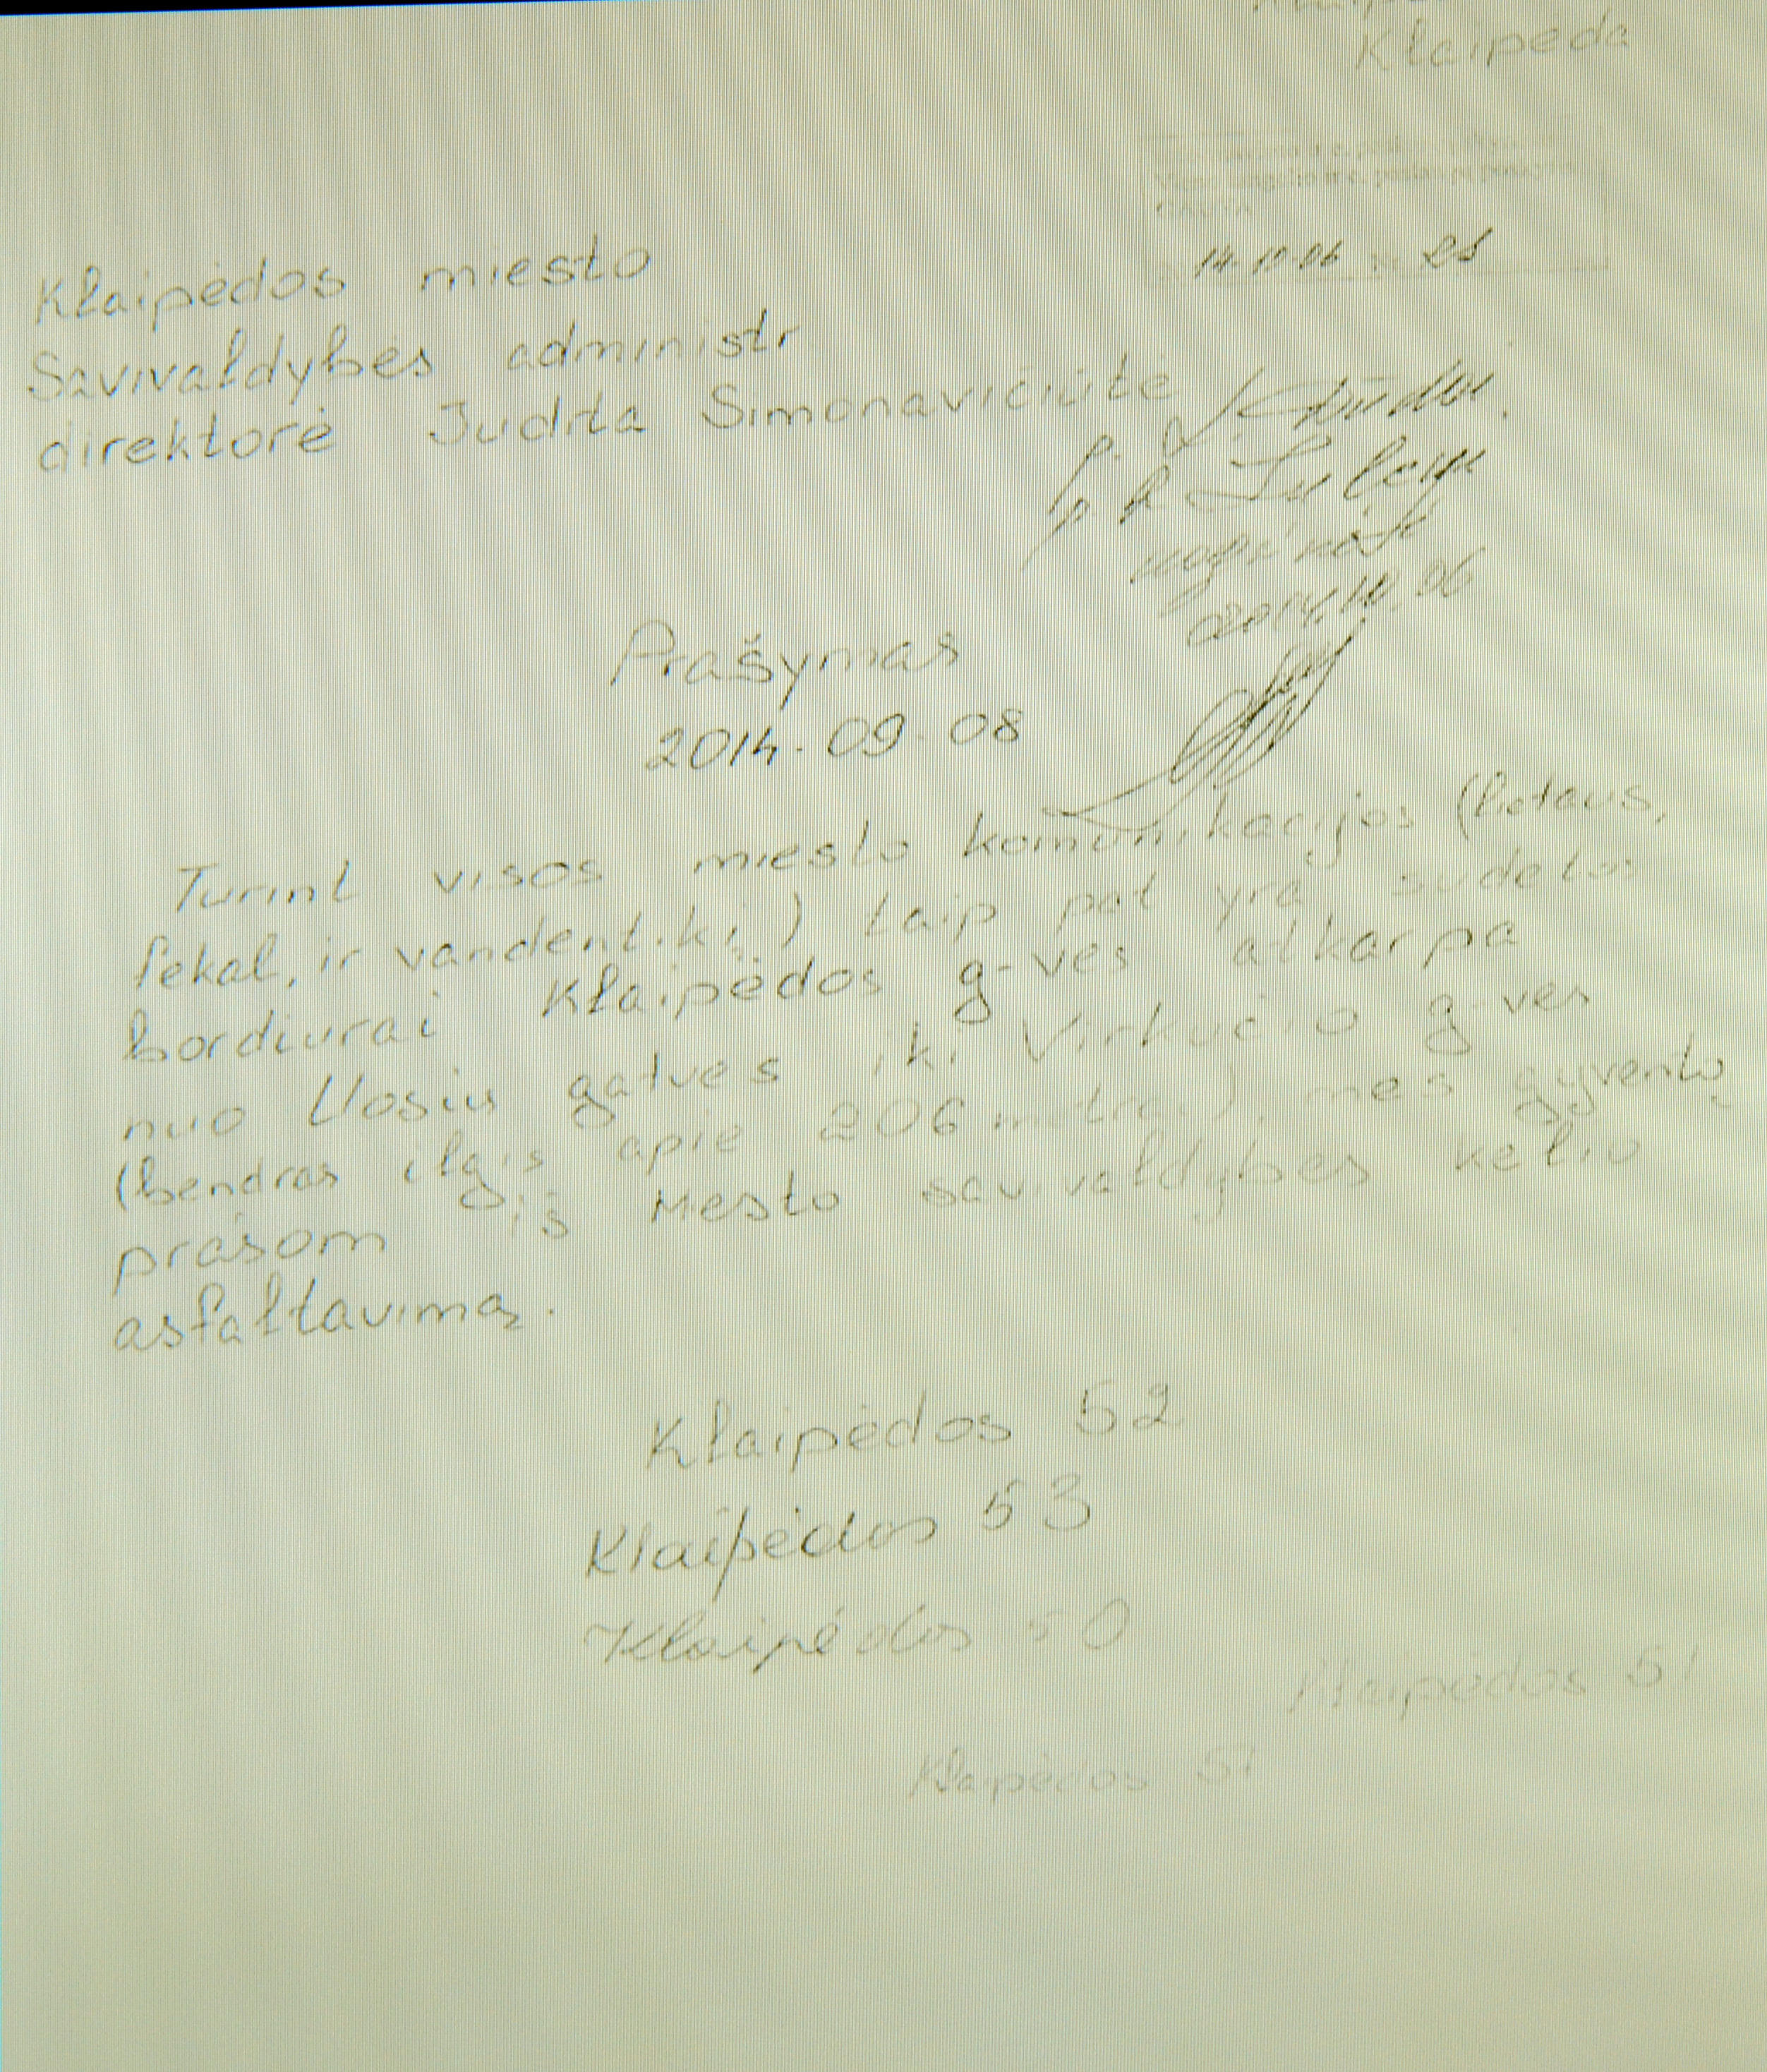 Klaipėda
GAUTA
14-10-06
Klaipėdos miesto
Savivaldybės administr
direktorė Judita Simonavičiūtė
2014.10.06
Prašymas
2014-09-08
Turint visos miesto komunikacijos (lietaus,
fekal, ir vandentiekį) taip pat yra sudetos
bordiurai Klaipėdos g-ves atkarpa
nuo Uosių gatves iki Virkučio g-ves
(bendras ilgis apie 206 metrai), mes gyventų
prašom iš Mesto savivaldybes keliu
asfaltavimą.
Klaipėdos 52
Klaipėdos 53
Klaipėdos 50
Klaipėdos 51
Klaipėdos 51